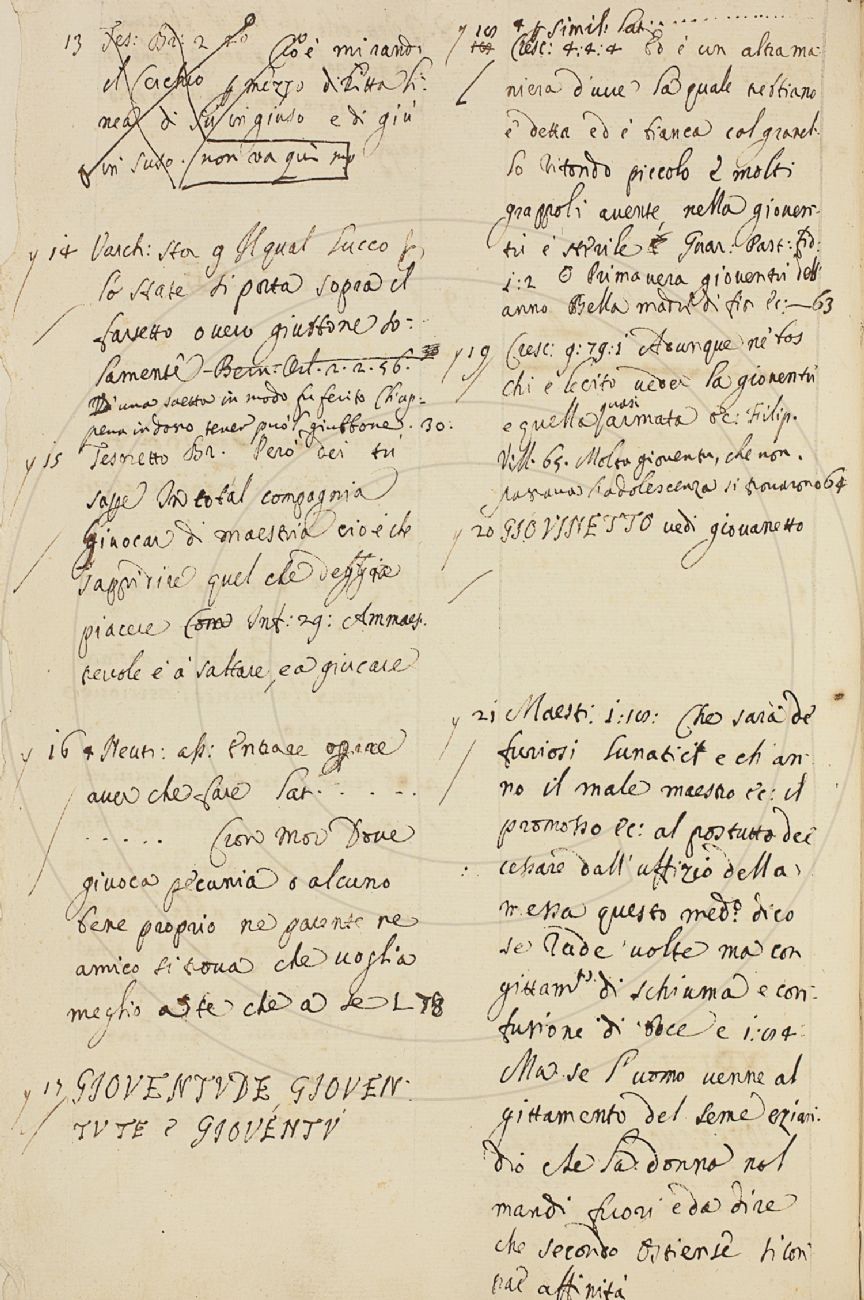 13 Tes: Br: 2 Cioè mirandi
il Cerchio p mezzo diritta li:
nea di su in giuso e di giù
in suso. non va qui
y 14 Varch: stor 9 Il qual Lucco
lo state si porta sopra il
farsetto overo giubbone so:
lamente - Bern: Orl. 2. 2. 56.
D'una saetta in modo fu ferito Chiap-
pena indosso tener può'l giubbone. 30:
y 15 Tesoretto Br. Però dei tù
saper In total compagnia
Giuocar di maestria cioè che
sappi dire quel che deggia
piacere Inf: 29: Ammaes.
tevole è à saltare, e a giucare
y 16 4 Neutr: ass: Entrare
aver che fare Lat. . . . . .
. . . . . Cron Mor Dove
giuoca pecunia o alcuno
bene proprio nè parente ne
amico si trova che voglia
meglio a te che a se L 78
y 17 GIOVENTUDE GIOVEN:
TUTE e GIOVENTÙ
y 18 4 p simil: Lat: . . . . . . . . .
Cresc: 4:4:4 Ed è un altra ma
niera d'uve la quale
è detta ed è bianca col granel.
lo ritondo piccolo e molti
grappoli avente, nella gioven-
tù è sterile Guar: Past: fid:
1:2 O Primavera gioventù dell'
anno Bella madre di fior &c: — 63
y 19 Cresc: 9:79:1 Adunque nè fos
chi è lecito veder la gioventù
e quella quasi armata &c: Filip.
Vill. 65. Molta gioventù, che non.
passava l'adolescenza si trovarono 64
y 20 GIOVINETTO vedi giovanetto
y 21 Maestr: 1:18: Che sarà de
furiosi lunatici e ch'an-
no il male maestro &c: il
promosso &c: al postutto dee
cessare dall'uffizio della
messa questo med.o dico
se rade volte ma con
gittam.to di schiuma e con:
fusione di voce e 1:84
Ma se l'uomo venne al
gittamento del seme ezian:
dio che la donna nol
mandi fuori è da dire
che secondo Ostiense si con
trae affinità